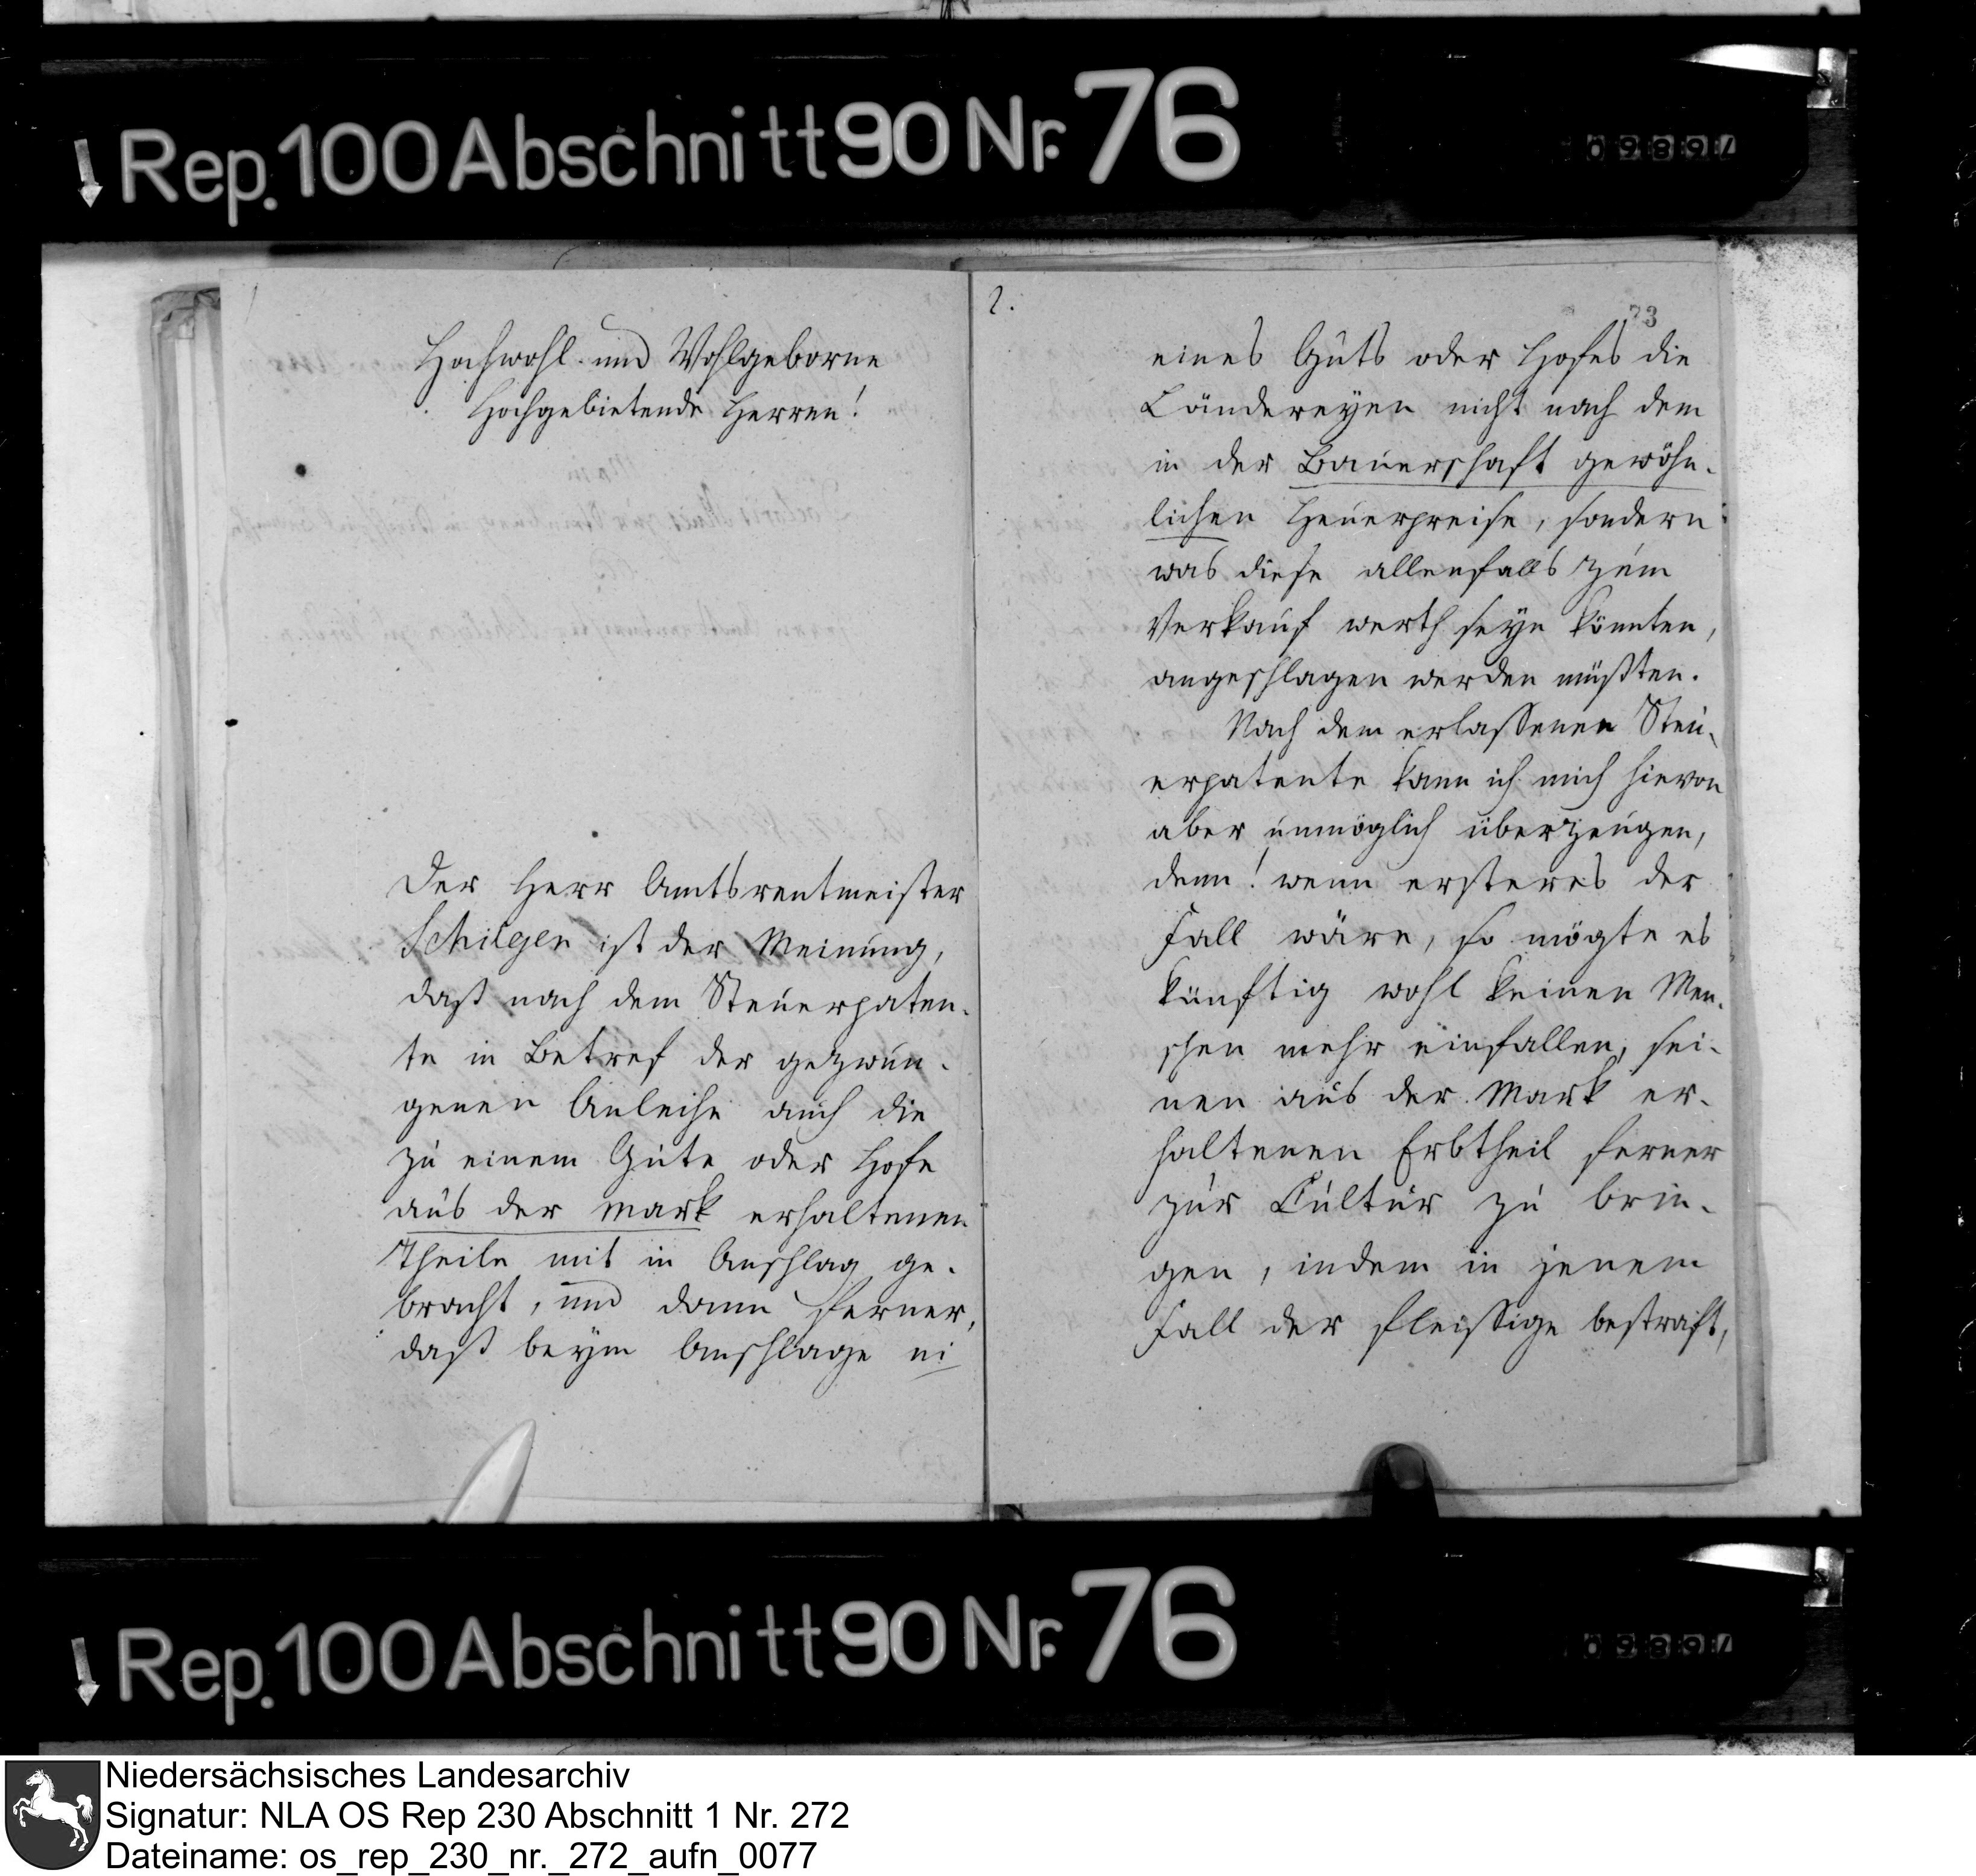 Rep. 100 Abschnitt 90 Nr. 76
Hochwohl- und Wohlgeborne
Hochgebietende Herren!
Der Herr Amtsrentmeister
Schilgen ist der Meinung,
daß nach dem Steuerpaten-
te in Betref der gezwun-
genen Anleihe auch die
zu einem Gute oder Hofe
aus der Mark erhaltenen
Theile mit in Anschlag ge-
bracht, und dann ferner,
daß beym Anschlage ei
2.
73
eines Guts oder Hofes die
Ländereyen nicht nach dem
in der Bauerschaft gewöhn-
lichen Heuerpreise, sondern
was diese allenfalls zum
Verkauf werth seyn könnten,
angeschlagen werden müßten.
Nach dem erlassenen Steu-
erpatente kann ich mich hievon
aber unmöglich überzeugen,
denn! wenn ersteres der
Fall wäre, so mögte es
künftig wohl keinen Men-
schen mehr einfallen, sei-
nen aus der Mark er-
haltenen Erbtheil ferner
zur Cultur zu brin-
gen, indem in jenem
Fall der fleissige bestraft,
Rep. 100 Abschnitt 90 Nr. 76
Niedersächsisches Landesarchiv
Signatur: NLA OS Rep 230 Abschnitt 1 Nr. 272
Dateiname: os_rep_230_nr._272_aufn_0077